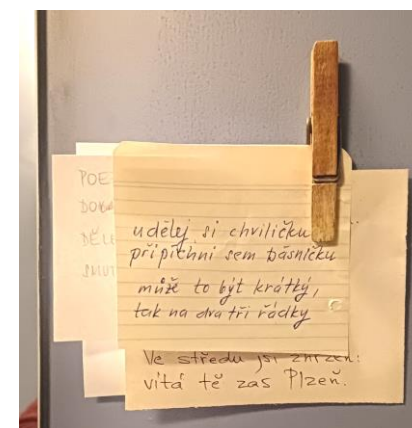 POE
DĚLE
SMUT
udělej si chviličku
připíchni sem básničku
může to být krátký,
tak na dva tři řádky
Ve středu jsi zhrzen:
vítá tě zas Plzeň.